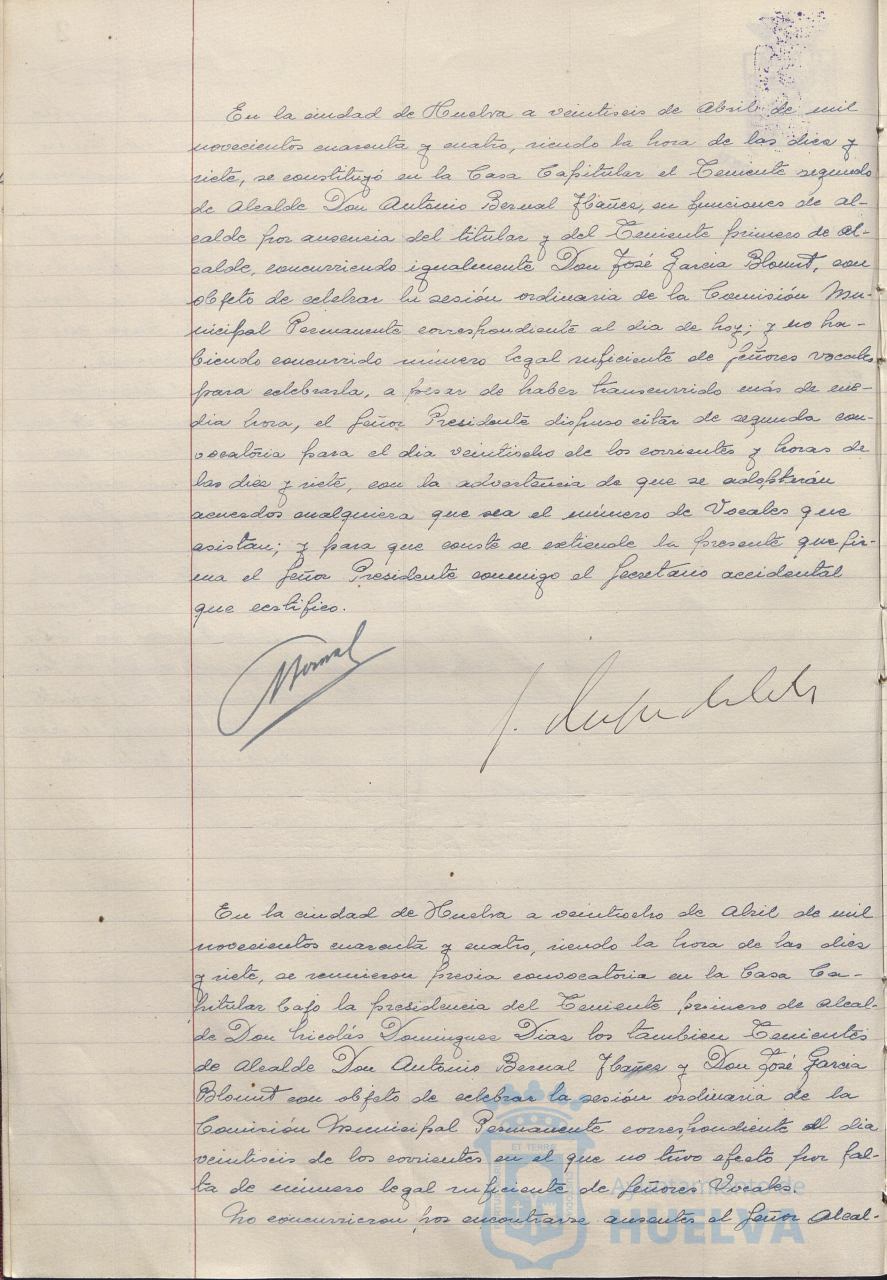 En la ciudad de Huelva a veintiseis de Abril de mil
novecientos cuarenta y cuatro, siendo la hora de las diez y
siete, se constituyó en la Casa Capitular el Teniente segundo
de Alcalde Don Antonio Bernal Ybañez, en funciones de al-
calde por ausencia del titular y del Teniente primero de Al-
calde, concurriendo igualmente Don José Garcia Blount, con
objeto de celebrar la sesión ordinaria de la Comisión Mu-
nicipal Permanente correspondiente al dia de hoy; y no ha-
biendo concurrido número legal suficiente de señores vocales
para celebrarla, a pesar de haber transcurrido más de me-
dia hora, el Señor Presidente dispuso citar de segunda con-
vocatoria para el dia veintiocho de los corrientes y horas de
las diez y siete, con la advertencia de que se adoptarán
acuerdos cualquiera que sea el número de Vocales que
asistan; y para que conste se extiende la presente que fir-
ma el Señor Presidente conmigo el Secretario accidental
que certifico.
ABernal
En la ciudad de Huelva a veintiocho de Abril de mil
novecientos cuarenta y cuatro, siendo la hora de las diez
y siete, se reunieron previa convocatoria en la Casa Ca-
pitular bajo la presidencia del Teniente primero de Alcal-
de Don Nicolás Dominguez Diaz los tambien Tenientes
de Alcalde Don Antonio Bernal Ybañez y Don José Garcia
Blount con objeto de celebrar la sesión ordinaria de la
Comisión Municipal Permanente correspondiente al dia
veintiseis de los corrientes en el que no tuvo efecto por fal-
ta de número legal suficiente de Señores Vocales.
No concurrieron por encontrarse ausentes el Señor Alcal-
Ayuntamiento de
HUELVA